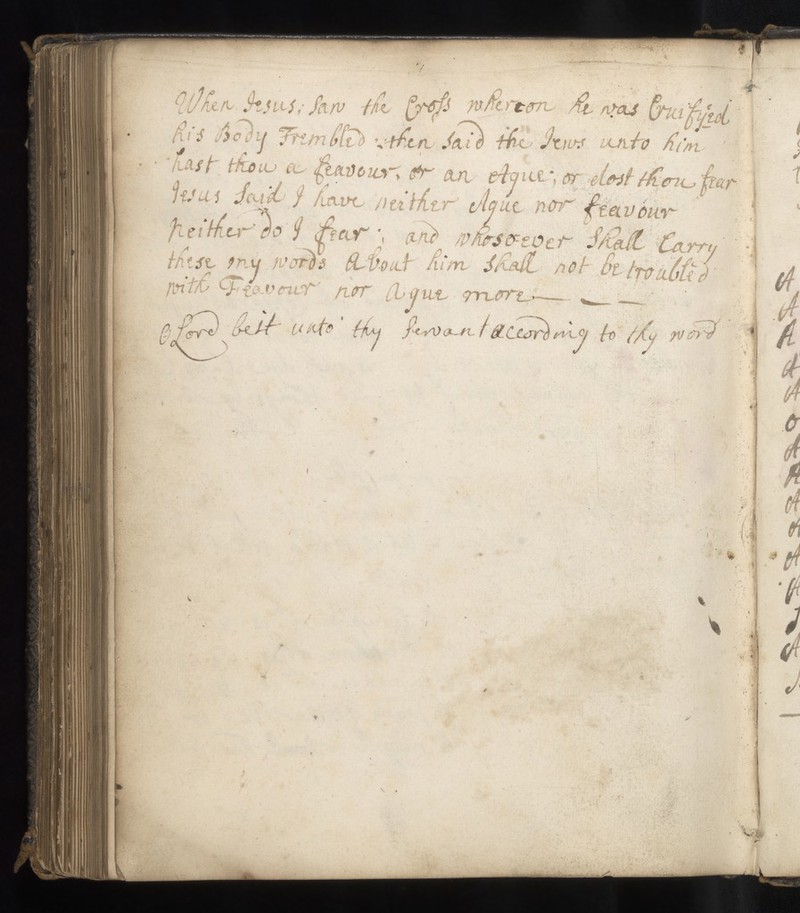 When Jesus; Saw the Cross whereon he was Cruifyed
his Body Trembled :then Said the Jews unto him
hast thou a feavour, or an Ague; or dost thou fear
Jesus Said I have neither Ague nor feavour
Neither do I fear; and whosoever Shall Carry
these my words About him Shall not be troubled
with Feavour nor Ague more
O Lord beit unto thy Servant according to thy word
A
A
A
A
A
O
A
A
A
A
A
A